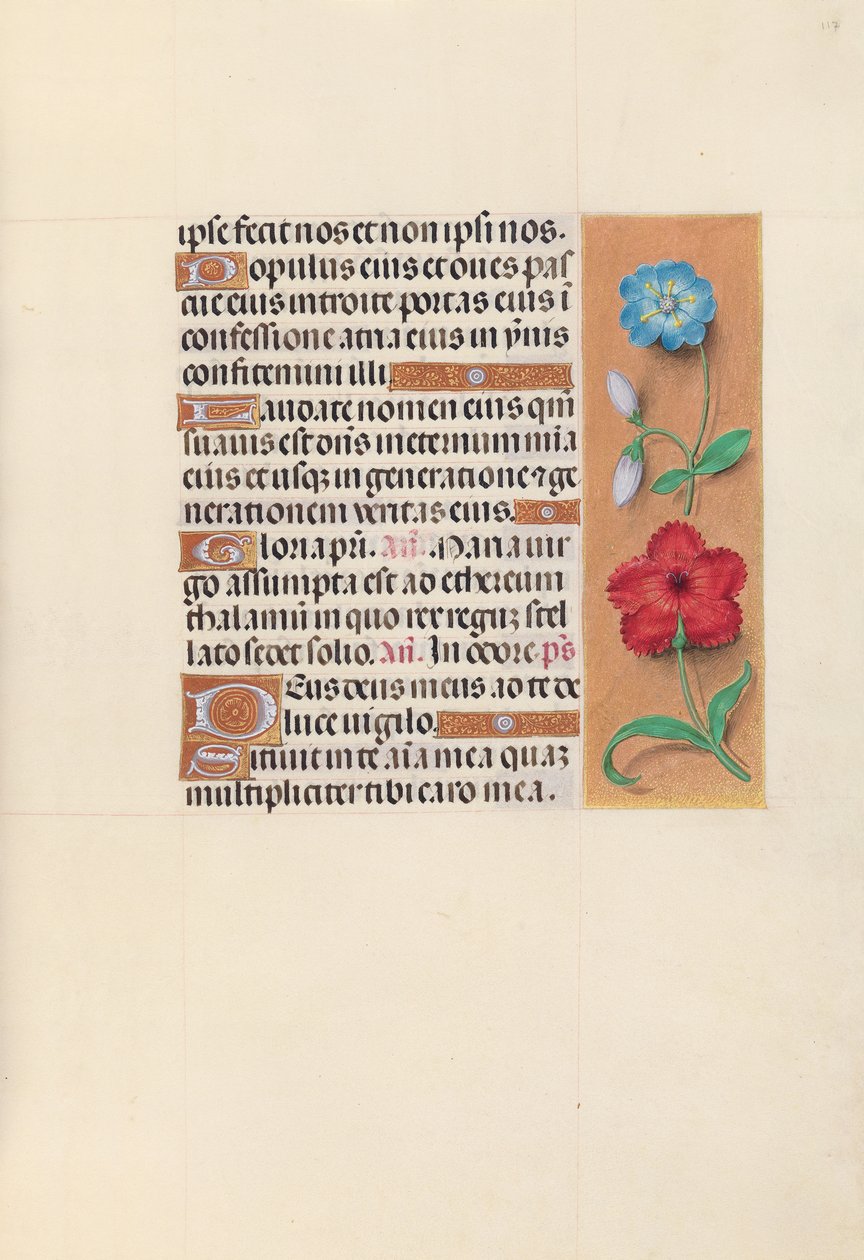 117
ipse fecit nos et non ipsi nos.
Populus eius et oues pas
cue eius introite portas eius ī
confessione atria eius in ymnis
confitemini illi.
Laudate nomen eius qm̄
suauis est dn̄s in eternum mīa
eius et usqꝫ in generatione ⁊ ge
nerationem veritas eius.
Gloria pri̅. An̄. Maria uir
go assumpta est ad ethereum
thalamū in quo rex regūꝫ stel
lato sedet solio. An̄. In odore. ps̄
Deus deus meus ad te de
luce uigilo.
Sitiuit in te aīa mea quaꝫ
multipliciter tibi caro mea.